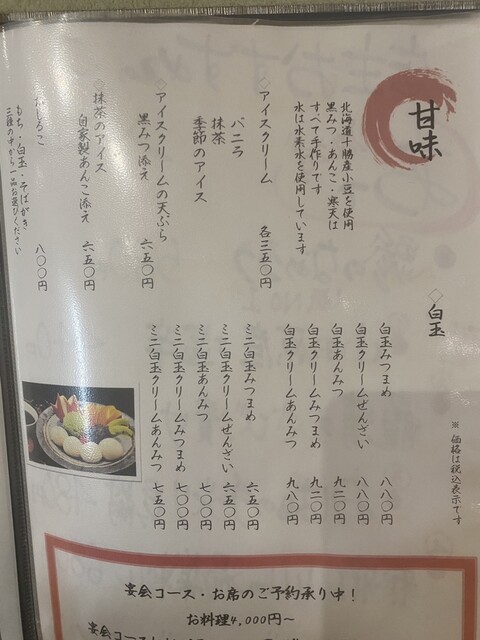 甘味
北海道十勝産小豆を使用
黒みつ・あんこ・寒天は
すべて手作りです
水は水素水を使用しています
◇アイスクリーム 各三五〇円
バニラ
抹茶
季節のアイス
◇アイスクリームの天ぷら
黒みつ添え 六五〇円
◇抹茶のアイス
自家製あんこ添え 六五〇円
おしるこ 八〇〇円
もち・白玉・そばがき
三種の中から一品お選びください
※価格は税込表示です
◇白玉
白玉みつまめ 八八〇円
白玉クリームぜんざい 八八〇円
白玉あんみつ 九二〇円
白玉クリームみつまめ 九二〇円
白玉クリームあんみつ 九八〇円
ミニ白玉みつまめ 六五〇円
ミニ白玉クリームぜんざい 六五〇円
ミニ白玉あんみつ 七〇〇円
ミニ白玉クリームみつまめ 七〇〇円
ミニ白玉クリームあんみつ 七五〇円
宴会コース・お席のご予約承り中！
お料理4,000円～
宴会コース